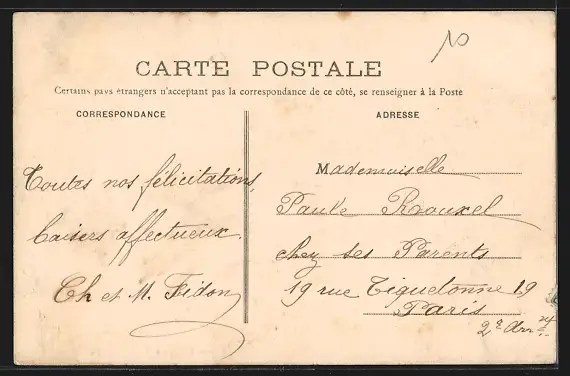 10
CARTE POSTALE
Certains pays étrangers n'acceptant pas la correspondance de ce côté, se renseigner à la Poste
CORRESPONDANCE
Toutes nos félicitations,
baisers affectueux.
Ch et M. Fidon
ADRESSE
Mademoiselle
Paule Rouxel
chez ses Parents
19 rue Tiquetonne 19
Paris
2e Arrt